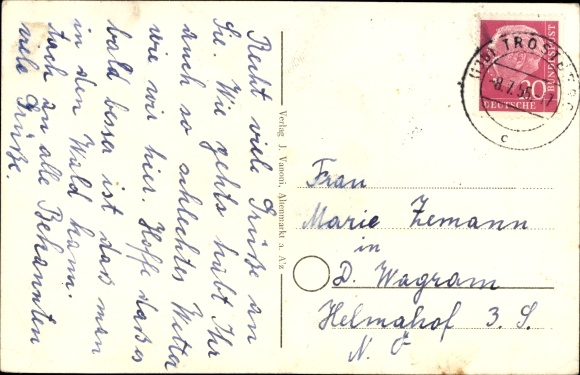 Recht viele Grüße an
Sie. Wie gehts habt Ihr
auch so schlechtes Wetter
wie wir hier. Hoffe daß es
bald besser ist daß man
in den Wald kann.
viele Grüße.
Verlag J. Vanoni, Altenmarkt a. A'z
TROSTBERG
-8.7.56.-7
c
20
DEUTSCHE
BUNDESPOST
Frau
Marie Zemann
in
D. Wagram
Helmahof 3. S.
N. Ö